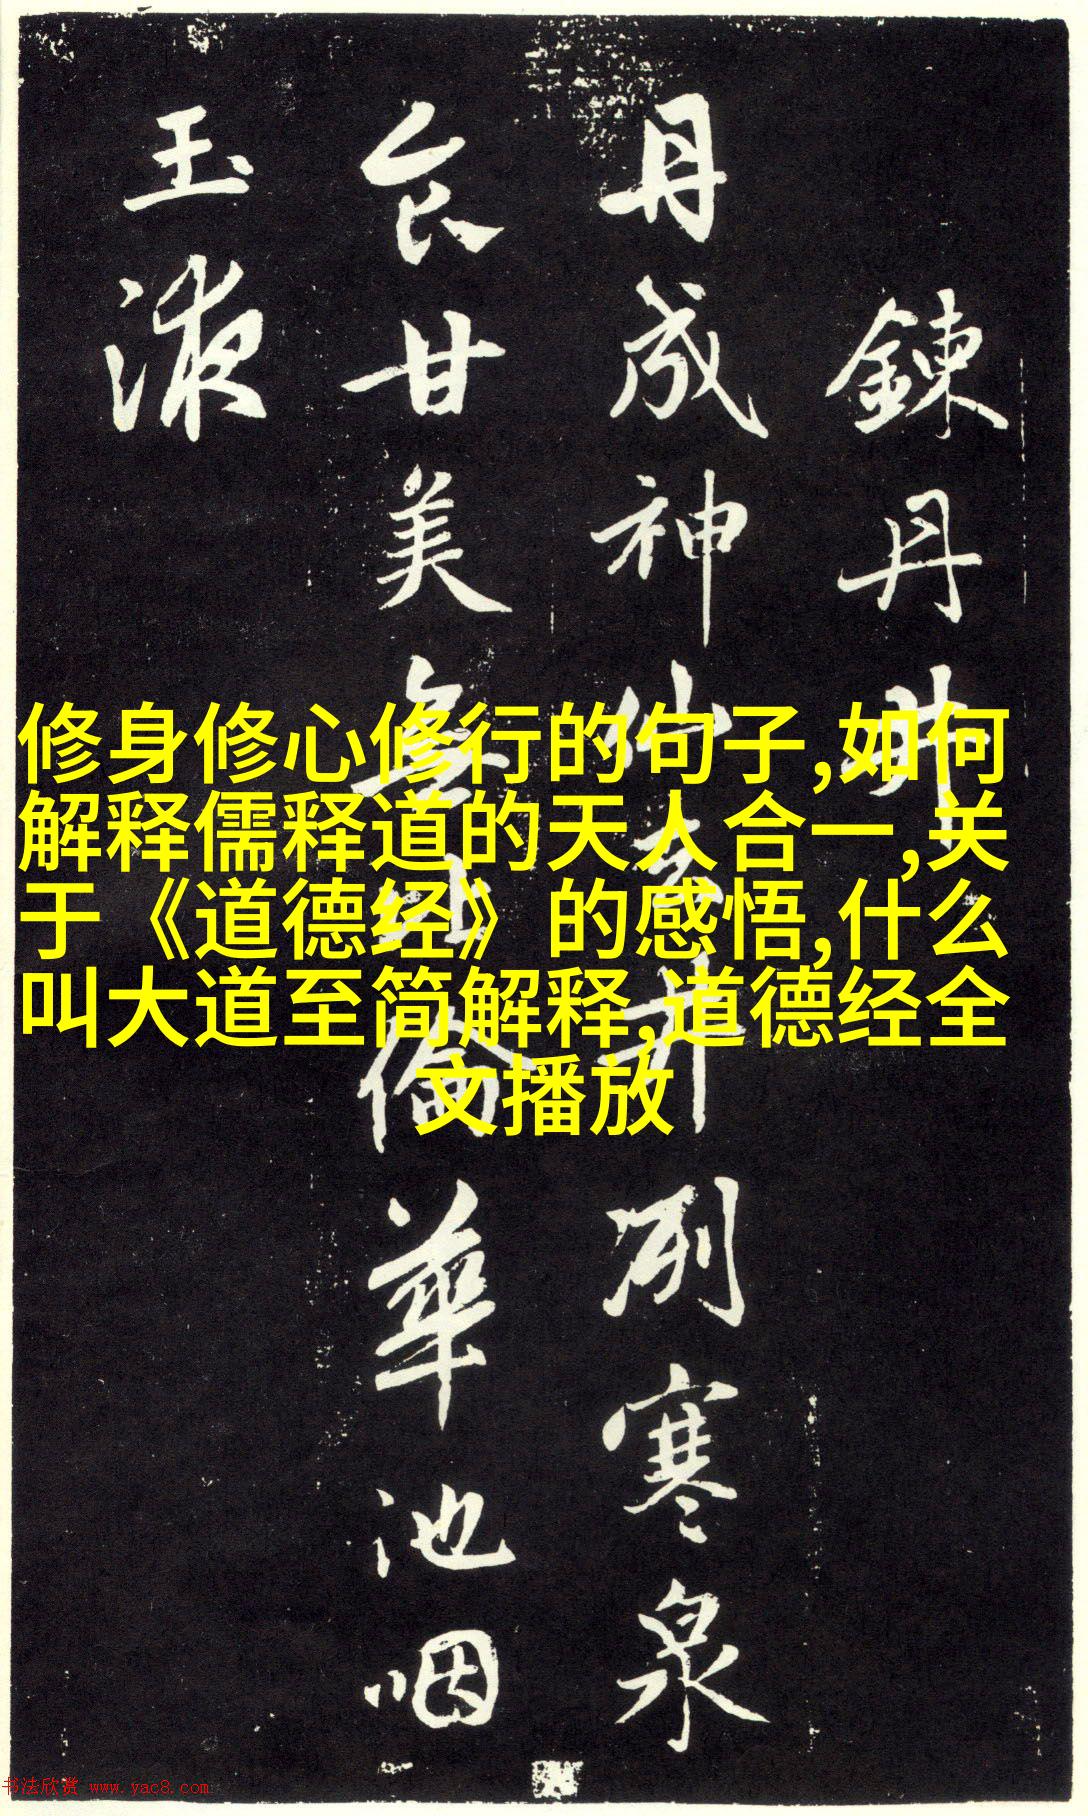 鍊丹井
丹成神仙去井冽寒泉
食甘美無比倫華池咽
玉液
修身修心修行的句子,如何
解释儒释道的天人合一,关
于《道德经》的感悟,什么
叫大道至简解释,道德经全
文播放
书法欣赏 www.yac8.com